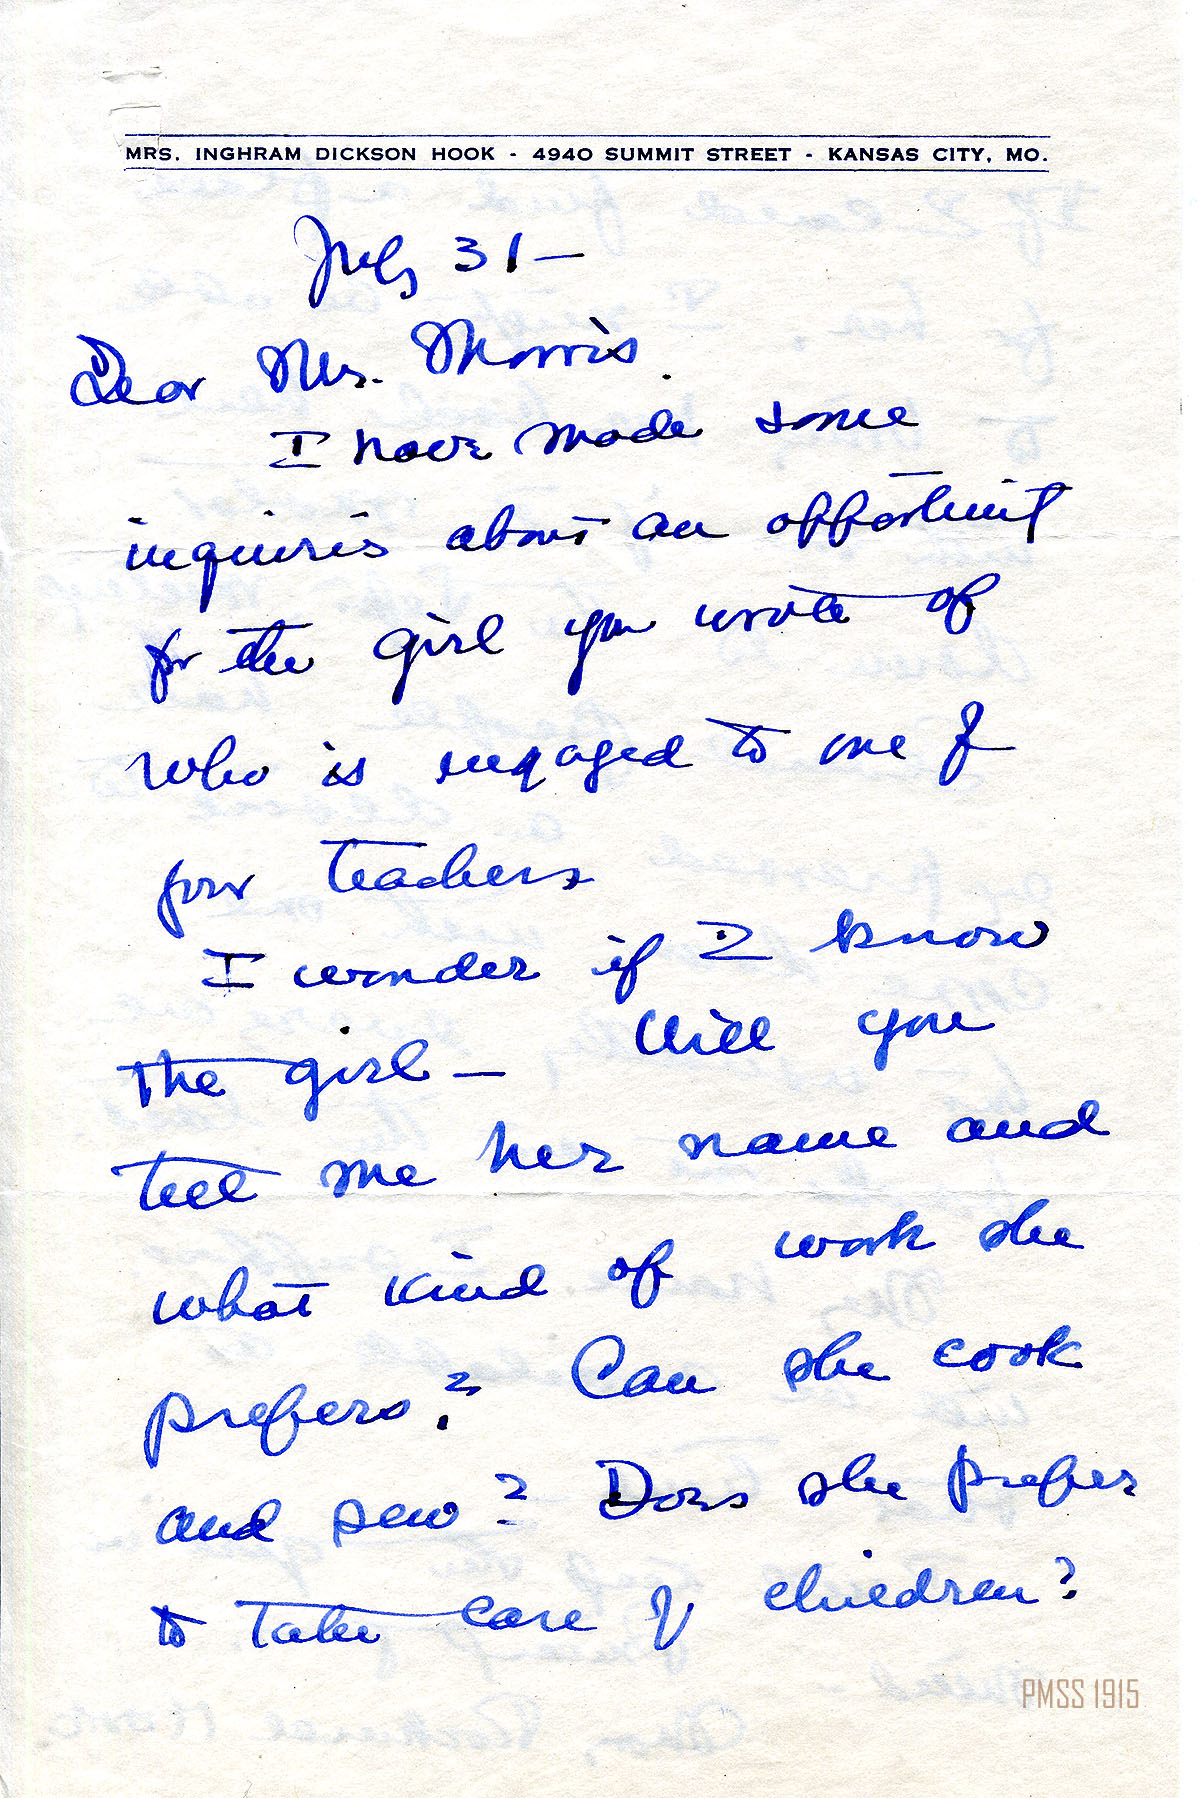 MRS. INGHRAM DICKSON HOOK - 4940 SUMMIT STREET - KANSAS CITY, MO.
July 31 —
Dear Mr. Morris.
I have made some
inquiries about an opportunity
for the girl you wrote of
who is engaged to one of
your teachers
I wonder if I know
the girl — Will you
tell me her name and
what kind of work she
prefers? Can she cook
and sew? Does she prefer
to take care of children?
PMSS 1915